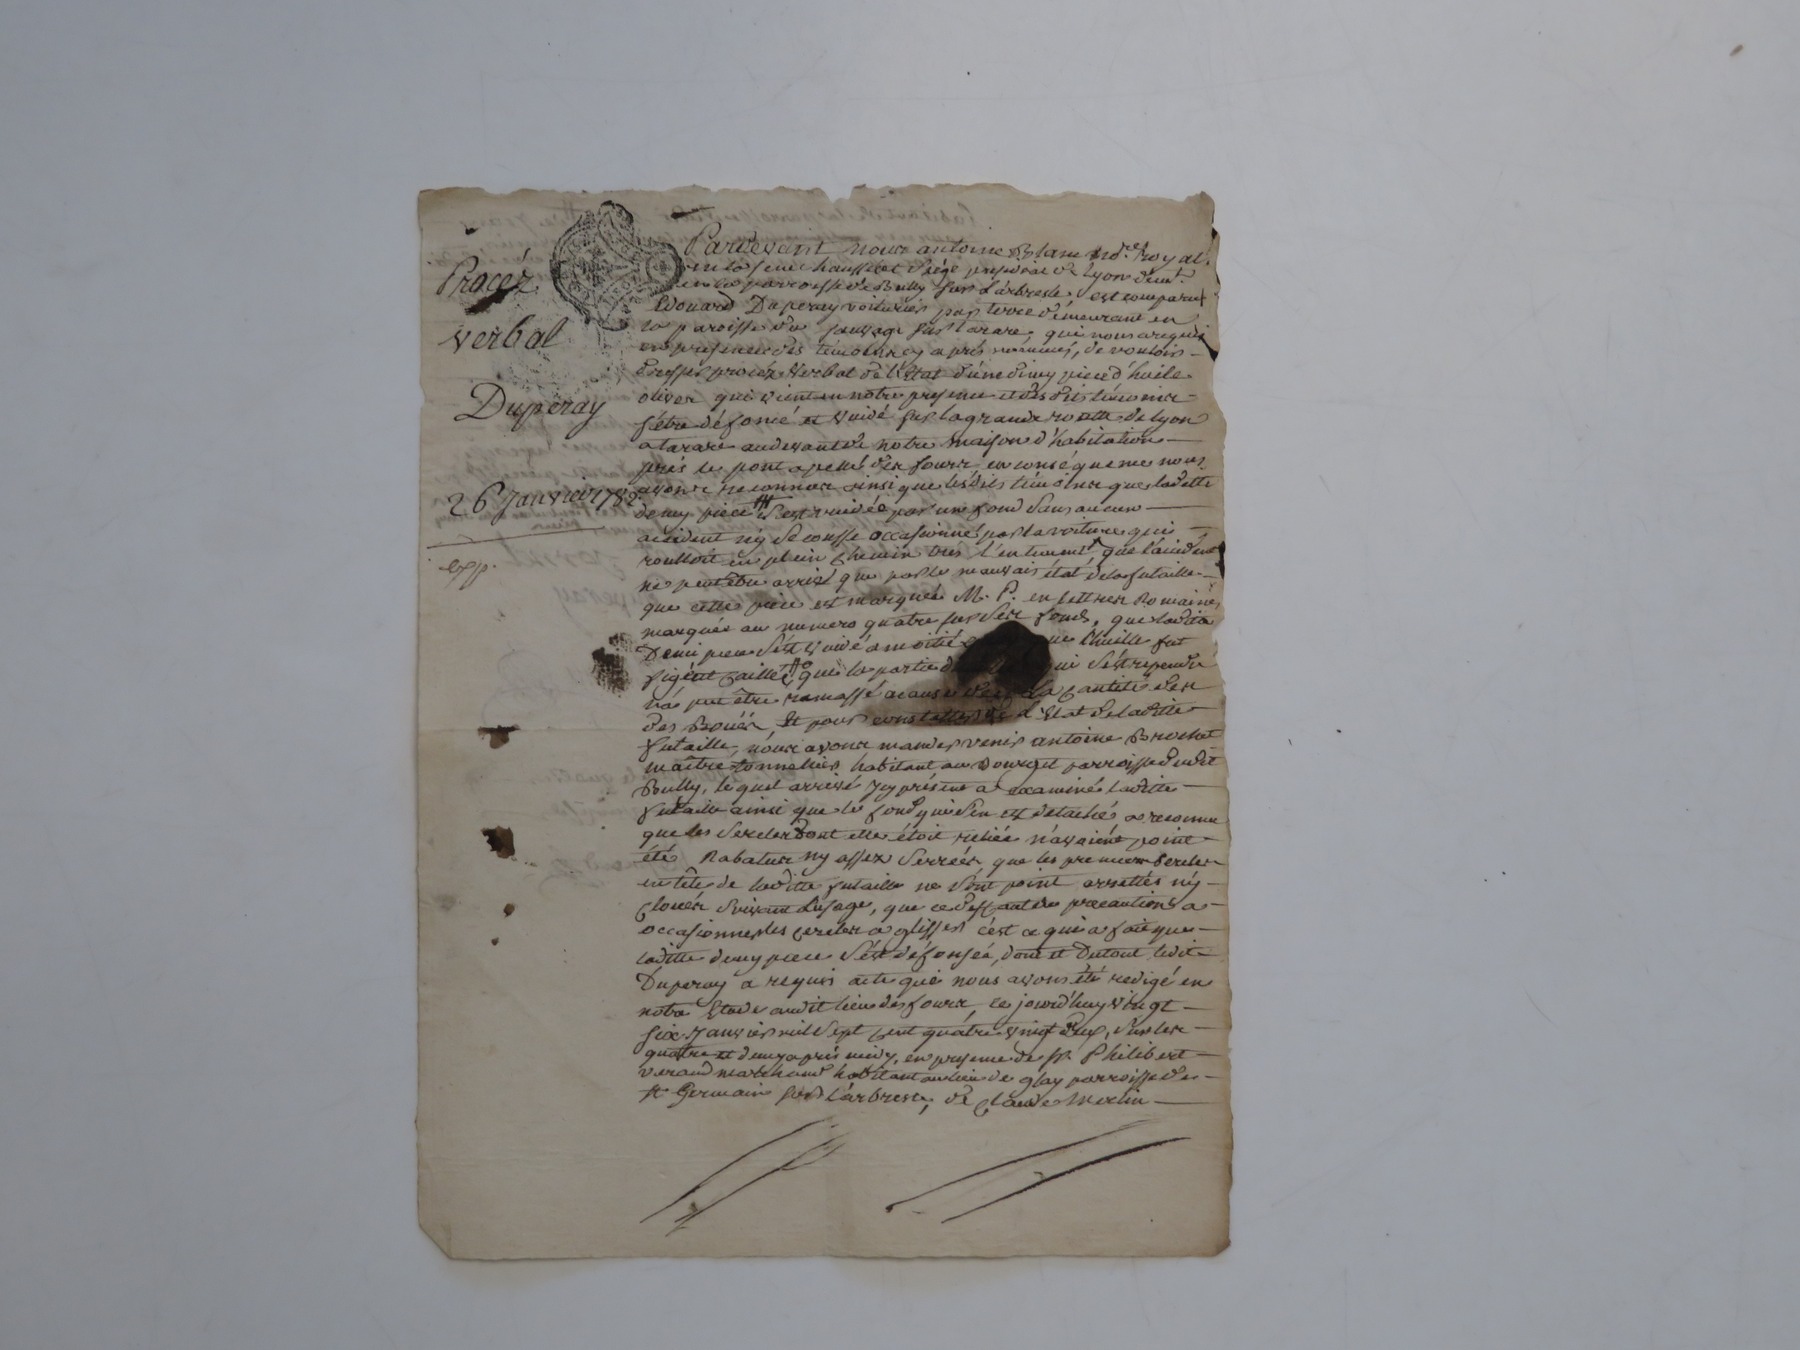 Procéz
verbal
Duperay
26 Janvier 1782
exp.
Pardevant nous antoine Blanc no.re royal
en la senechaussée et siége presidial de Lyon dem.t
en la parroisse de Bully sur L'arbresle, est comparu
Edouard Duperay voiturier par terre demeurant en
la paroisse du sauvage sur tarare, qui nous a requis
en presence des témoins cy après nommés, de vouloir
dresser procéz verbal de l'Etat d'une demy piece d'huile
olives qui vient en notre presence et desdits témoins
s'être défoncé et vuidé sur la grande routte de Lyon
a tarare au devant de notre maison d'habitation
près le pont apellé des fours en conséquence nous
avons reconnus ainsi que lesdits témoins que ladette
demy piece s'est vuidée par un fond sans aucun
accident ny secousse occasionné par la voiture qui
roulloit en plein chemin très lentement que l'accident
ne peut être arrivé que par le mauvais état de la futaille
que cette piece est marquée M. P. en lettres Romaines
marquée au numero quatre sur ses fonds, que ladite
Demi piece s'est vuidé a moitié que l'huille fut
figé et caillé que la partie qui s'est rependue
n'a peut être ramassé a cause de la cantité des
des Bouës, Et pour constatter l'Etat de laditte
futaille, nous avons mandes venir antoine Brochet
maitre tonnellier habitant au Bourg et parroisse dudit
Bully, le quel arrivé Icy présent a examiné laditte
futaille ainsi que le fond qui s'en est detaché, a reconnu
que les sercles dont elle étoit reliée n'avoient point
été Rabatus ny assez serrées que les premiers sercles
en tête de laditte futaille ne sont point arrettés ny
cloués suivant L'usage, que ce deffaut de precautions a
occasionner les cercles a glisser c'est ce qui a fait que
laditte demy piece s'est défonsée, dont et Du tout ledit
Duperay a requis acte que nous avons été redigé en
notre Etude audit lieu des fours, ce jourd'huy vingt
six Janvier mil sept cent quatre vingt deux, sur les
quatre et demy après midy, en presence de sr. Philibert
verand marchand habitant au lieu de glay parroisse de
st Germain sur L'arbresle, de Claude Merlin